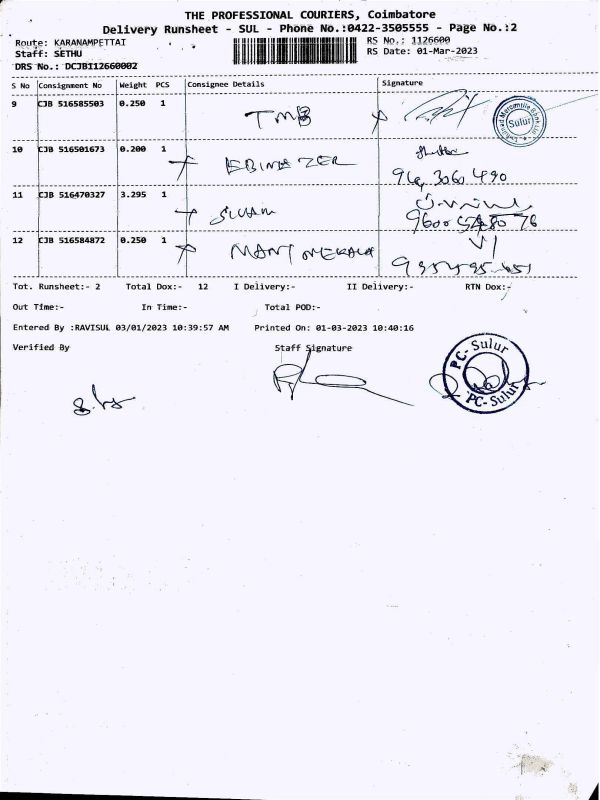 THE PROFESSIONAL COURIERS, Coimbatore
Delivery Runsheet - SUL - Phone No.:0422-3505555 - Page No.:2
Route: KARANAMPETTAI RS No.: 1126600
Staff: SETHU RS Date: 01-Mar-2023
DRS No.: DCJBI12660002
S No Consignment No Weight PCS Consignee Details Signature
9 CJB 516585503 0.250 1 TMB
Sulur
10 CJB 516501673 0.200 1 EBINAZER
11 CJB 516470327 3.295 1 SIVAM
12 CJB 516584872 0.250 1 MANI MEKALA
Tot. Runsheet:- 2 Total Dox:- 12 I Delivery:- II Delivery:- RTN Dox:-
Out Time:- In Time:- Total POD:-
Entered By :RAVISUL 03/01/2023 10:39:57 AM Printed On: 01-03-2023 10:40:16
Verified By Staff Signature
PC- Sulur
PC- Sulur